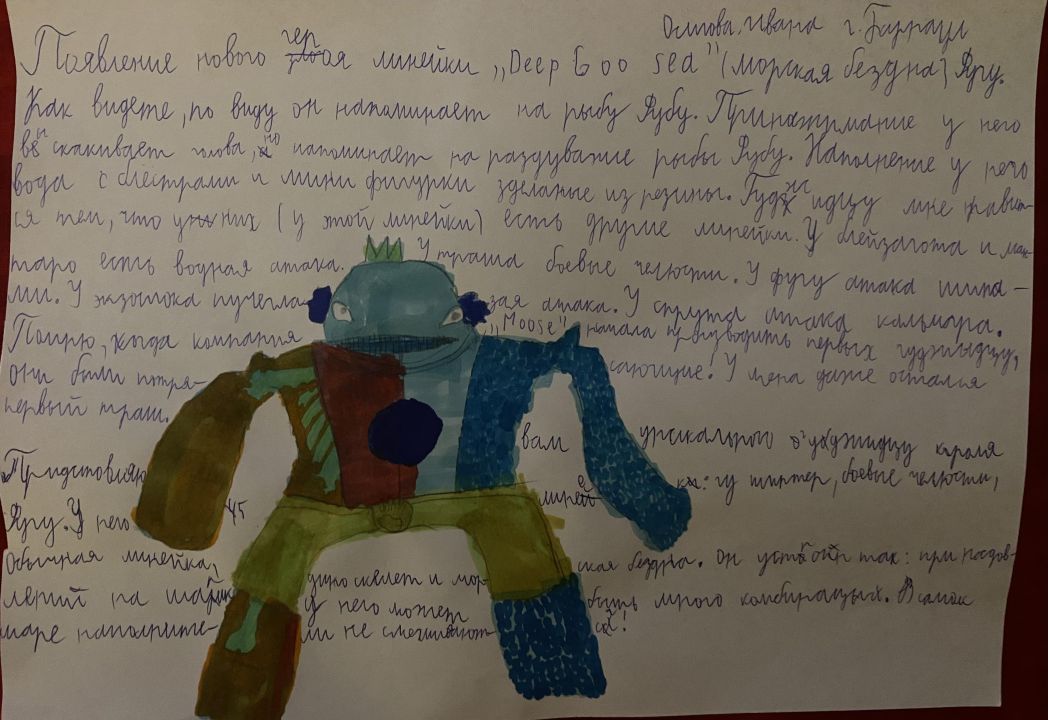 Осипова Ивана г. Барнаул
Появление нового героя линейки „Deep Goo sea" (морская бездна) Яру.
Как видете, по виду он напоминает на рыбу Фубу. При нажимание у него
выскакивает голова, но напоминает на раздувание рыбы Фубу. Наполнение у него
вода с блёстрами и мини фигурки зделаные из резины. Гуджидзу мне нравит-
ся тем, что у них (у этой линейки) есть другие линейки. У блейзагота и ман-
таро есть водная атака. У траша боевые челюсти. У фугу атака шипа-
ми. У экзошока пучегла зая атака. У спрута атака кальмара.
Помню, когда компания „Moose" начала производить первых гуджидзу,
они были потря- сающие! У меня даже остался
первый траш.
Представляю вам уникального гуджидзу короля
Яру. У него 45 линеек: гу шифтер, боевые челюсти,
Обычная линейка, дино и мор- ская бездна. Он так: при надов-
лений на шарик у него может быть много комбинацый. В самом
шаре наполните- ли не смешивают ся!